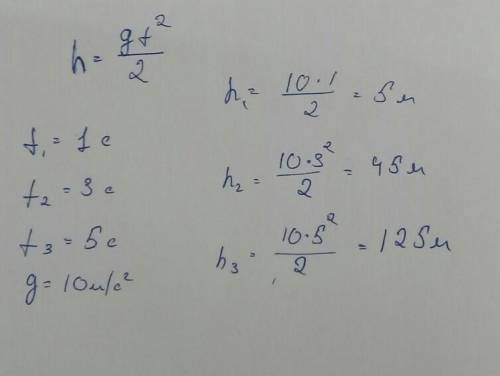 h = gt²/2
t₁ = 1 с
t₂ = 3 с
t₃ = 5 с
g = 10 м/с²
h₁ = 10·1/2 = 5 м
h₂ = 10·3²/2 = 45 м
h₃ = 10·5²/2 = 125 м